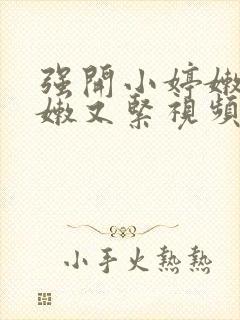 强開小婷嫩
嫩又緊視頻
小手火熱熱